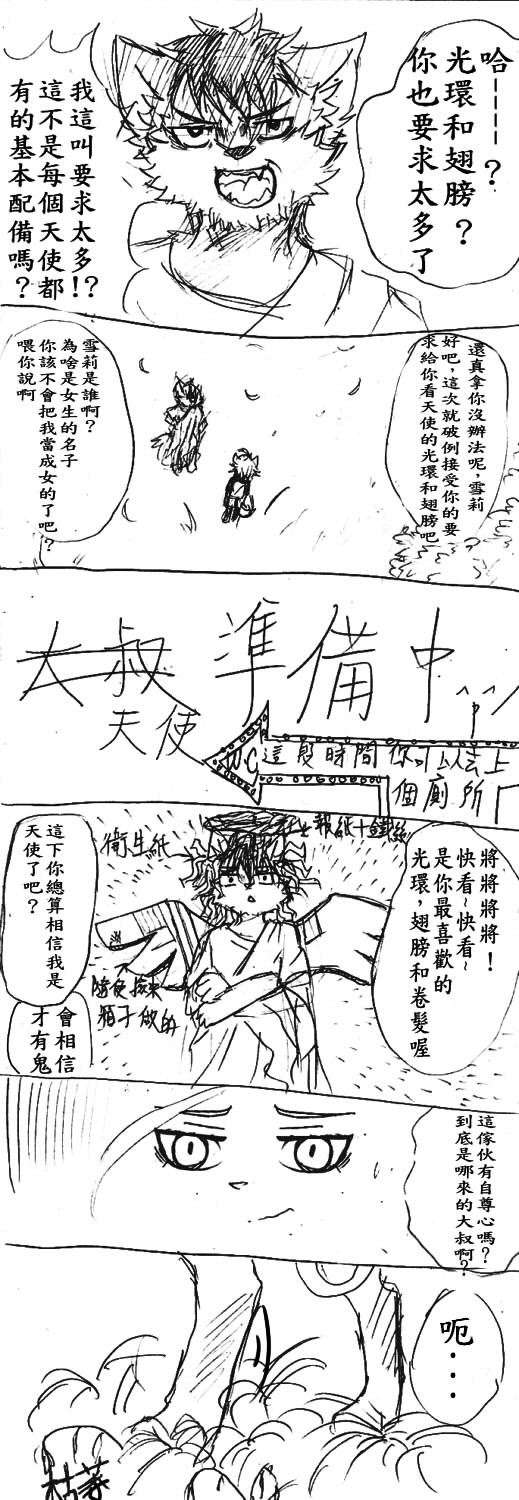 哈----？
光環和翅膀？
你也要求太多了
我這叫要求太多!?
這不是每個天使都
有的基本配備嗎？
還真拿你沒辦法呢，雪莉
好吧，這次就破例接受你的要
求給你看天使的光環和翅膀吧
雪莉是誰啊？
為啥是女生的名子
你該不會把我當成女的了吧？
喂你說啊
大叔 準備中
天使
WC這段時間你可以去上
個廁所
報紙+鐵絲
衛生紙
將將將將！
快看~快看~
是你最喜歡的
光環，翅膀和卷髮喔
這下你總算相信我是
天使了吧？
隨便撿來
箱子做的
會相信
才有鬼
這傢伙有自尊心嗎？
到底是哪來的大叔啊？
呃...